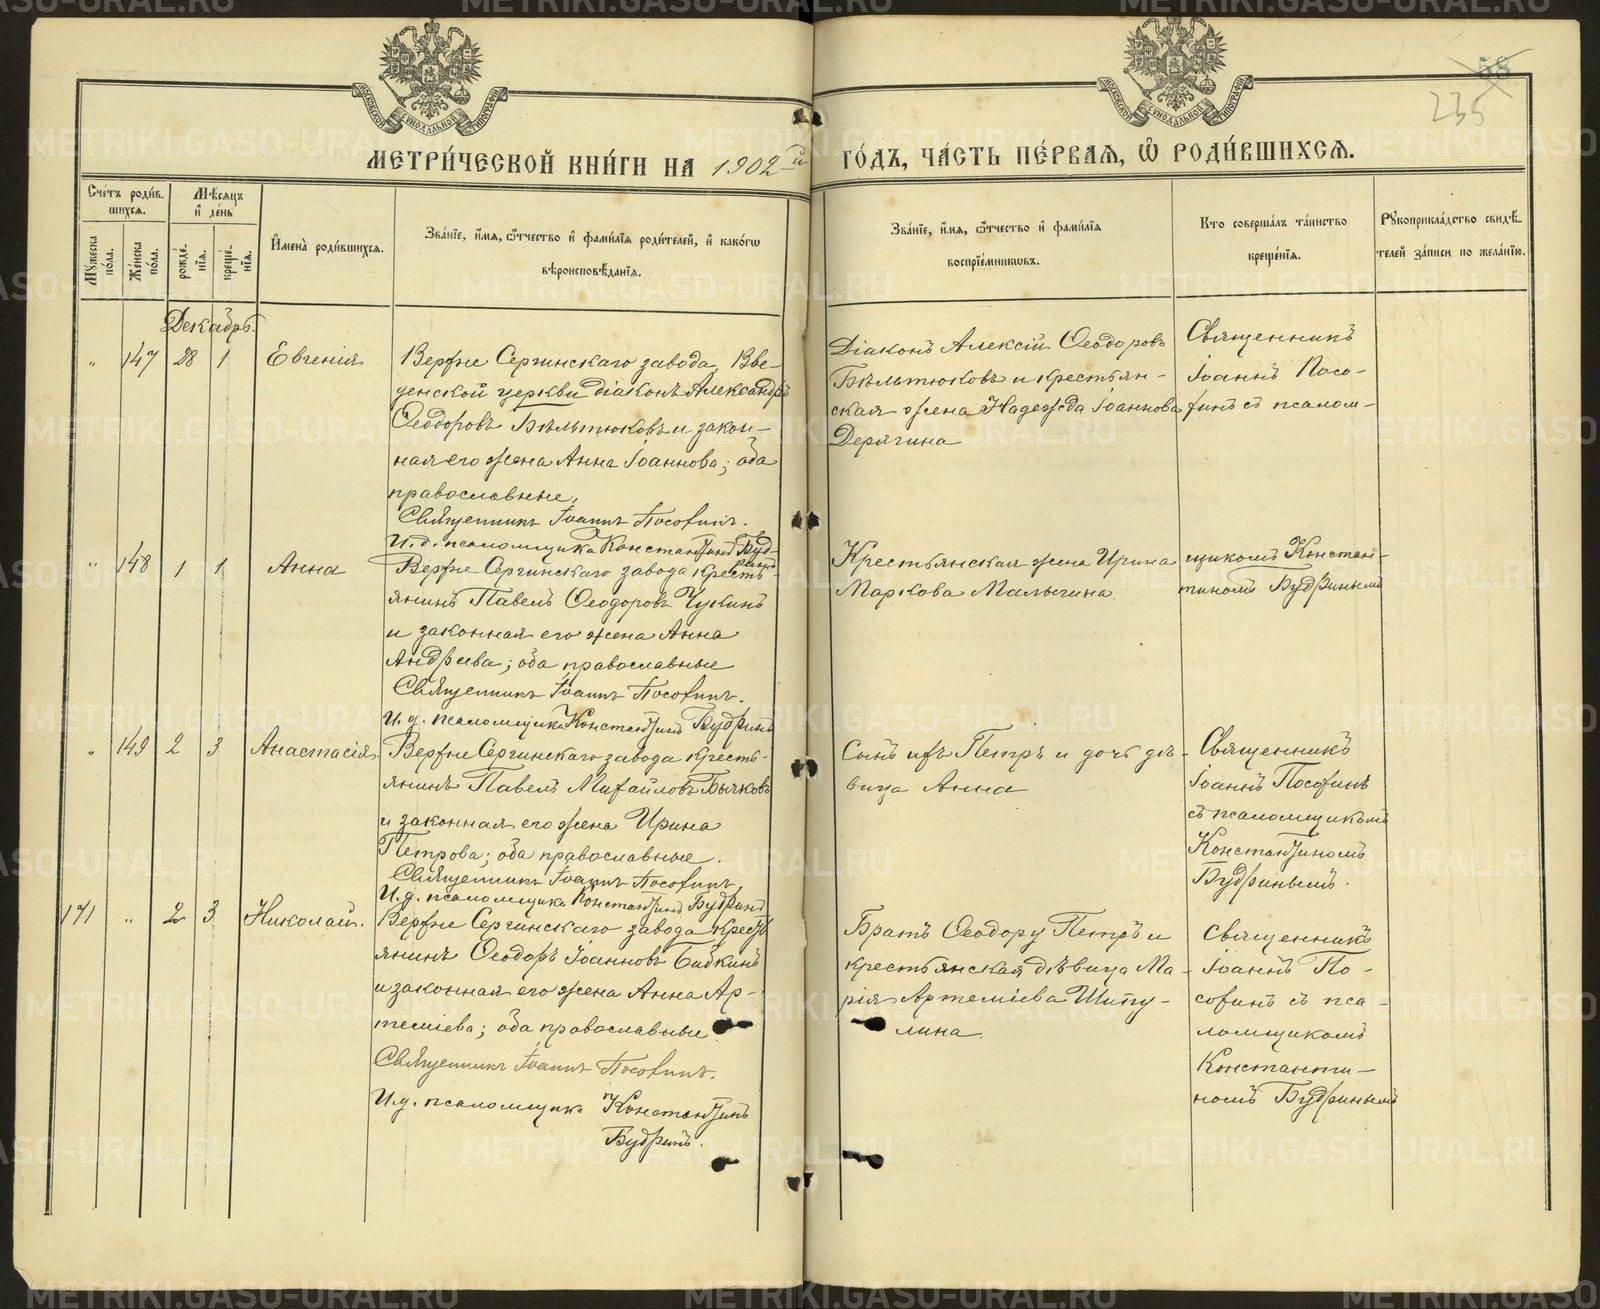 58
235
МОСКОВСКОЙ СѴНОДАЛЬНОЙ ТИПОГРАФІИ
МОСКОВСКОЙ СѴНОДАЛЬНОЙ ТИПОГРАФІИ
МЕТРИ́ЧЕСКОЙ КНИ́ГИ НА 1902-й ГО́ДЪ, ЧА́СТЬ ПЕ́РВАЯ, Ѿ РОДИ́ВШИХСЯ.
Сче́тъ роди́в-
шихся.
Мꙋ́жеска по́ла.
Же́нска по́ла.
Мѣ́сяцъ
и҆ де́нь
рожде́нїя.
креще́нїя.
И҆мена̀ роди́вшихся.
Зва́нїе, и҆́мя, ѻ҆́тчество и҆ фами́лїя роди́телей, и҆ како́гѡ
вѣроисповѣ́данїя.
Зва́нїе, и҆́мя, ѻ҆́тчество и҆ фами́лїя
воспрїе́мниковъ.
Кто соверша́лъ та́инство
креще́нїя.
Рꙋкоприкла́дство свидѣ́-
телей за́писи по жела́нїю.
Декабрь.
" 147 28 1 Евгенія
Верхне Сергинскаго завода, Вве-
денской церкви діаконъ Александръ
Ѳеодоровъ Бѣльтюковъ и закон-
ная его жена Анна Іоаннова; оба
православные.
Священникъ Іоаннъ Посохинъ.
И. д. псаломщика Константинъ Будринъ
Діаконъ Алексій Ѳеодоровъ
Бѣльтюковъ и крестьян-
ская жена Надежда Іоаннова
Дерягина
Священникъ
Іоаннъ Посо-
хинъ съ псалом-
щикомъ Констан-
тиномъ Будринымъ
" 148 1 1 Анна
Верхне Сергинскаго завода кресть-
янинъ Павелъ Ѳеодоровъ Чукинъ
и законная его жена Анна
Андреева; оба православные
Священникъ Іоаннъ Посохинъ.
И. д. псаломщика Константинъ Будринъ
Крестьянская жена Ирина
Маркова Малычина.
" 149 2 3 Анастасія
Верхне Сергинскаго завода кресть-
янинъ Павелъ Михайловъ Бычковъ
и законная его жена Ирина
Петрова; оба православные.
Священникъ Іоаннъ Посохинъ.
И. д. псаломщика Константинъ Будринъ
Сынъ ихъ Петръ и дочь дѣ-
вица Анна
Священникъ
Іоаннъ Посохинъ
съ псаломщикомъ
Константиномъ
Будринымъ.
171 " 2 3 Николай.
Верхне Сергинскаго завода кресть
янинъ Ѳеодоръ Іоанновъ Бабкинъ
и законная его жена Анна Ар-
темиева; оба православные
Священникъ Іоаннъ Посохинъ.
И. д. псаломщика Константинъ
Будринъ.
Братъ Ѳеодору Петръ и
крестьянская дѣвица Ма-
рія Артеміева Шипу-
лина.
Священникъ
Іоаннъ По-
сохинъ съ пса-
ломщикомъ
Константи-
номъ Будринымъ
METRIKI.GASO-URAL.RU